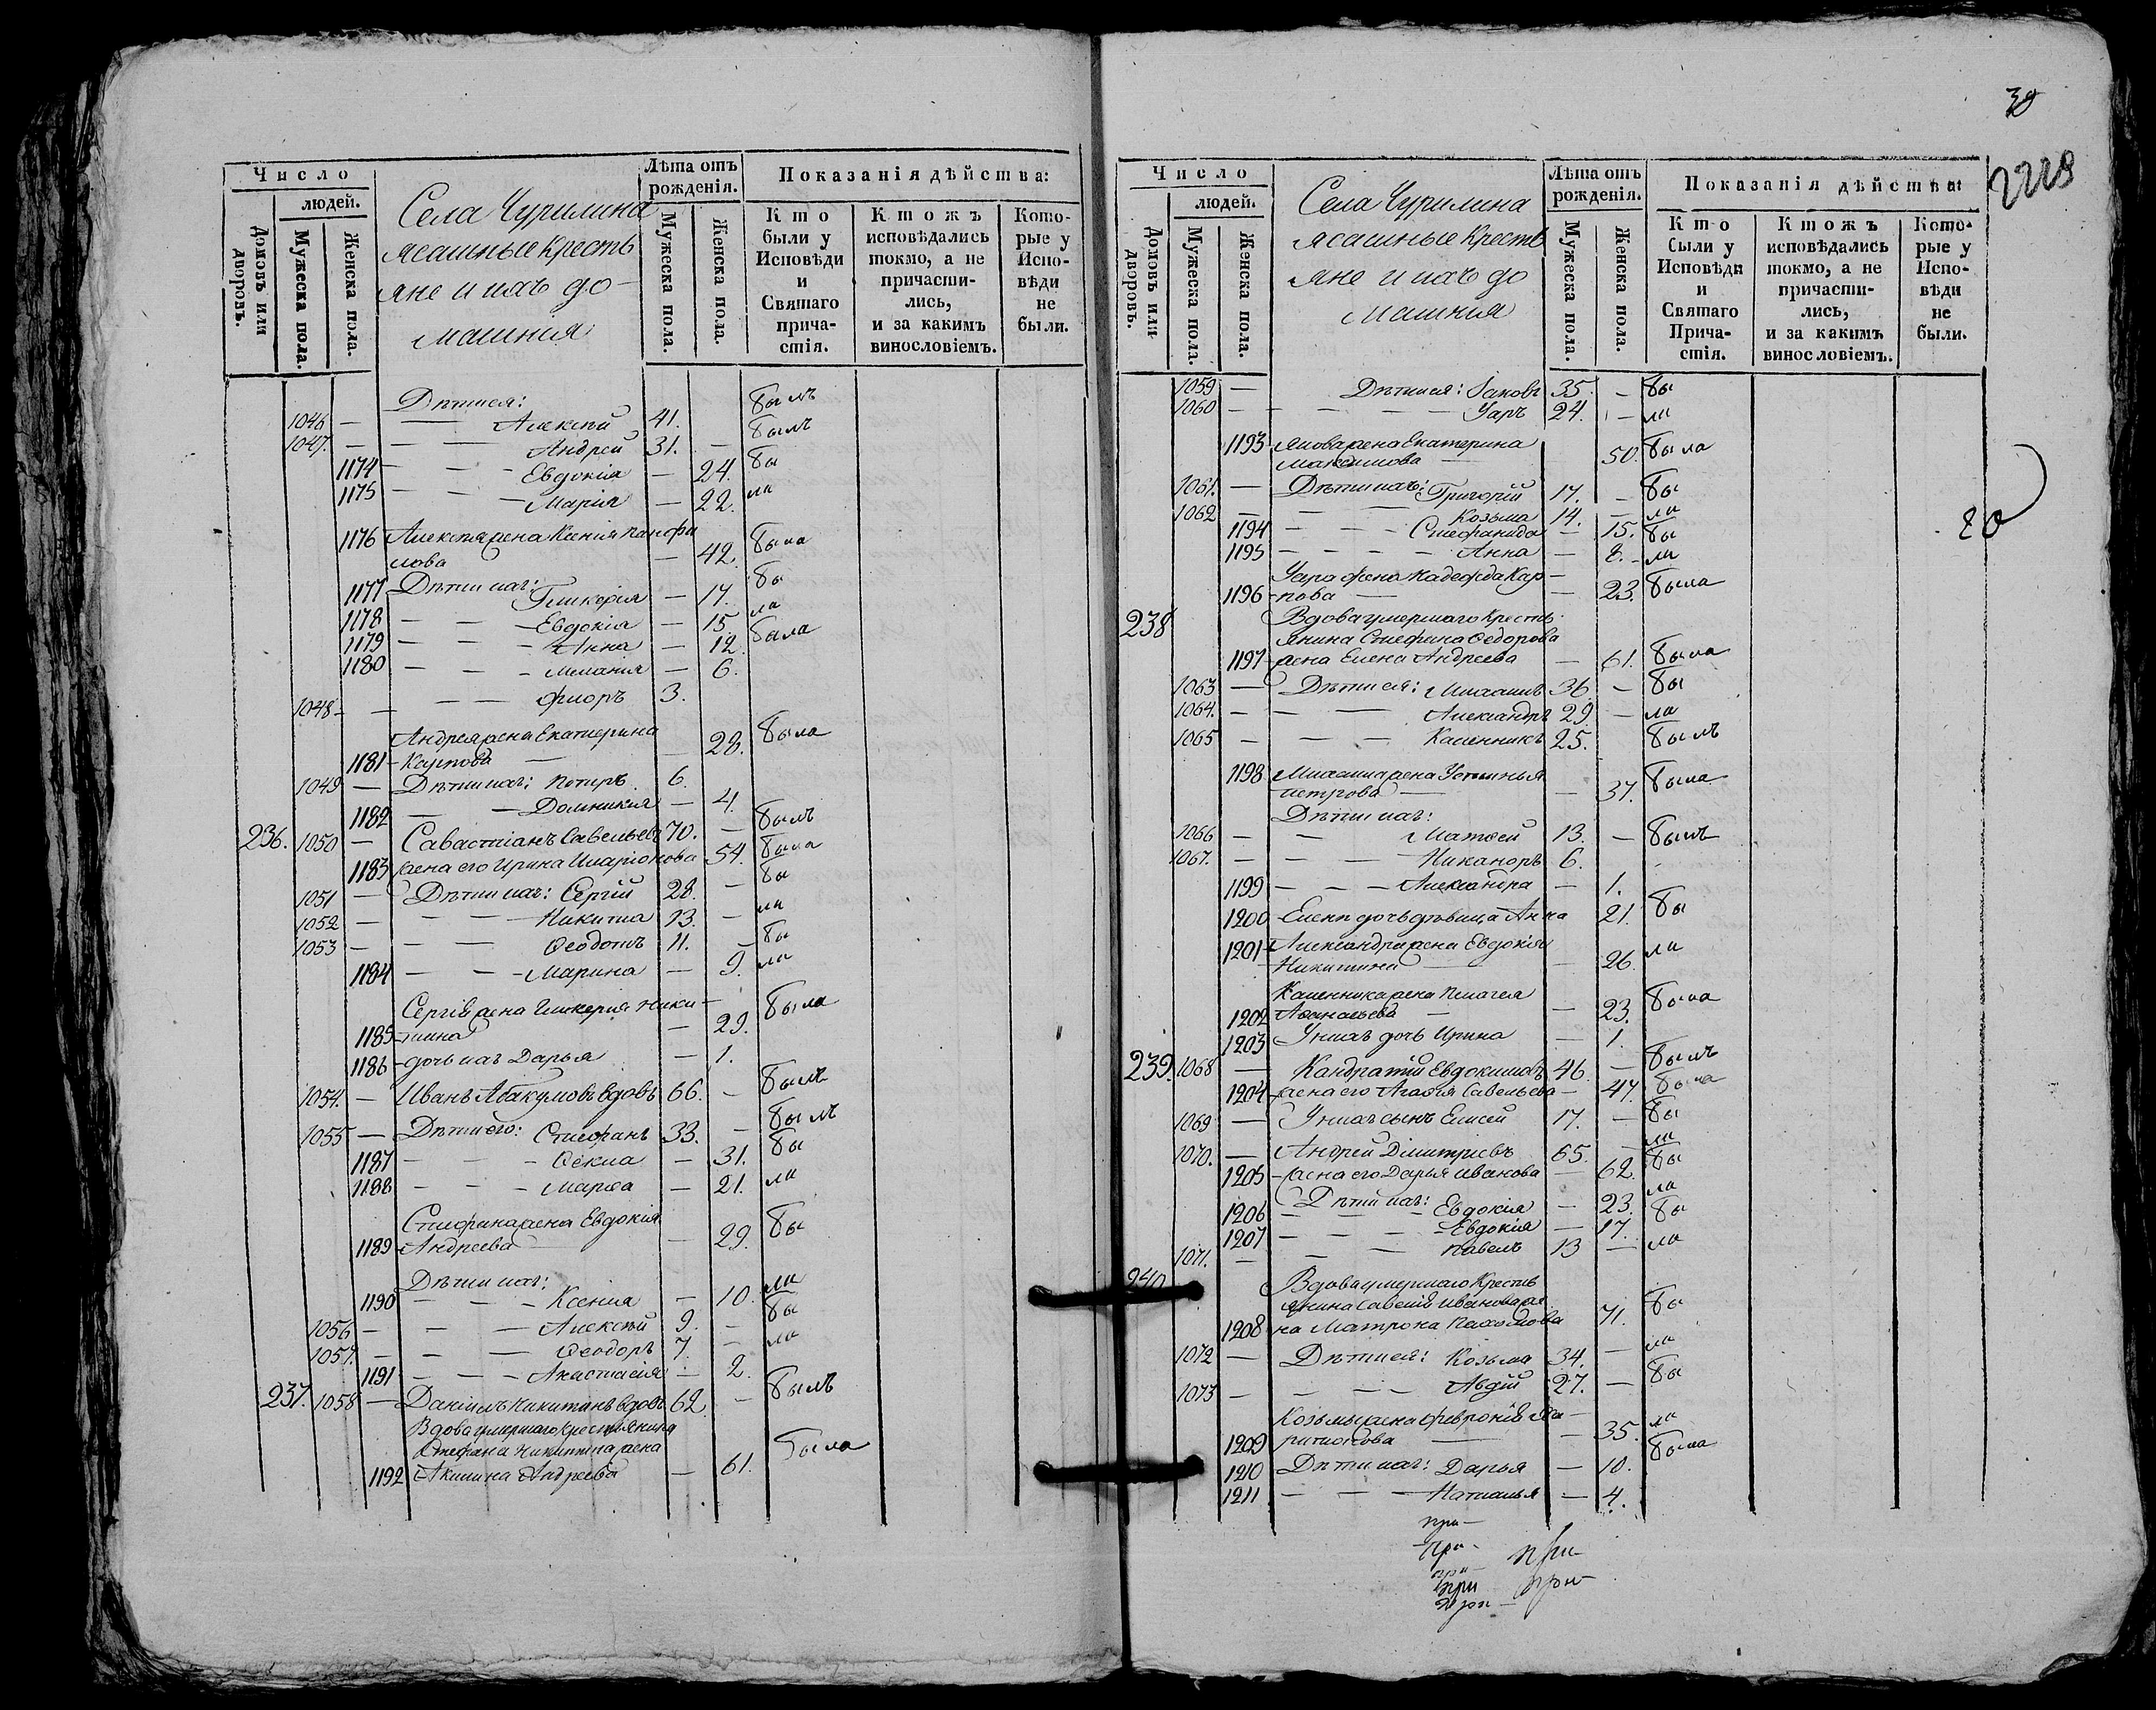 Число
людей.
Домовъ или дворовъ.
Мужеска пола.
Женска пола.
Села Чурилина
ясашные кресть
яне и ихъ до-
машнія
Лѣта отъ
рожденія.
Мужеска пола.
Женска пола.
Показанія дѣйства:
Кто
были у
Исповѣди
и
Святаго
прича-
стія.
Ктожъ
исповѣдались
токмо, а не
причасти-
лись,
и за какимъ
винословіемъ.
Кото-
рые у
Испо-
вѣди
не
были.
Дѣти ея:
1046 — Алексѣй 41. былъ
1047. — Андрей 31. — былъ
1174 — Евдокія — 24. бы
1175 — Марія — 22. ли
1176 Алексѣя жена Ксенія Панфи
лова — 42. была
Дѣти ихъ:
1177 Гликерія — 17. бы
1178 — Евдокія — 15 ли
1179 — Анна — 12. была
1180 — Меланія — 6.
1048 — Флоръ 3.
Андрея жена Екатерина
1181 Карпова — 28. была
1049 — Дѣти ихъ: Петръ 6.
1182 — Домникия — 4.
236. 1050 — Савастіанъ Савельевъ 70. — былъ
1183 жена его Ирина Иларіонова 54. была
1051 — Дѣти ихъ: Сергій 28. — бы
1052 — Никита 13. — ли
1053 — Ѳеодотъ 11. — бы
1184 — Марина — 9. ли
Сергія жена Гликерия Ники-
1185 тина — 29. была
1186 дочь ихъ Дарья — 1.
1054. — Иванъ Абакумовъ вдовъ 66. — былъ
1055 — Дѣти его: Стефанъ 33. — былъ
1187 — Ѳекла — 31. бы
1188 — Марѳа — 21. ли
Стефана жена Евдокія
1189 Андреева — 29. бы
Дѣти ихъ:
1190 — Ксенія — 10. ли
1056 — Алексѣй 9. — бы
1057. — Ѳеодоръ 7. — ли
1191 — Анастасія — 2.
237. 1058 — Даніилъ Никитинъ вдовъ 62. — былъ
Вдова умершаго крестьянина
Стефана Никитина жена
1192 Акилина Андреева — 61. была
39
2228
20
Число
людей.
Домовъ или дворовъ.
Мужеска пола.
Женска пола.
Села Чурилина
ясашные кресть
яне и ихъ до
машнія
Лѣта отъ
рожденія.
Мужеска пола.
Женска пола.
Показанія дѣйства:
Кто
были у
Исповѣди
и
Святаго
Прича-
стія.
Ктожъ
исповѣдались
токмо, а не
причасти-
лись,
и за какимъ
винословіемъ.
Кото-
рые у
Испо-
вѣди
не
были.
1059 — Дѣти ея: Іаковъ 35. — бы
1060 — Уаръ 24. — ли
1193 Якова жена Екатерина
Максимова — 50. была
1061. — Дѣти ихъ: Григорій 17. — бы
1062 — Козьма 14. — ли
1194 — Стефанида — 15. бы
1195 — Анна — 8. ли
Уара жена Надежда Кар-
1196 пова — 23. была
238 Вдова умершаго кресть
янина Стефана Ѳедорова
1197 жена Елена Андреева — 61. была
1063 — Дѣти ея: Михаилъ 36 — бы
1064. — Александръ 29. — ли
1065 — Калинникъ 25. былъ
1198 Михаила жена Устинья
Петрова — 37. была
Дѣти ихъ:
1066 — Матѳей 13. — былъ
1067. — Никаноръ 6.
1199 — Александра — 1.
1200 Елены дочь дѣвица Анна 21. бы
1201 Александра жена Евдокія
Никитина — 26. ли
Калинника жена Пелагея
1202 Аѳанасьева — 23. была
1203 У нихъ дочь Ирина — 1.
239. 1068 — Кандратій Евдокимовъ 46. — былъ
1204 жена его Агаѳія Савельева — 47. была
1069 — У нихъ сынъ Елисей 17. — бы
1070. — Андрей Димитріевъ 65. — ли
1205 жена его Дарья Иванова — 62. бы
Дѣти ихъ:
1206 — Евдокія — 23. ли
1207 — Евдокія — 17. бы
1071. — Павелъ 13 — ли
240 Вдова умершаго кресть
янина Савелія Иванова же
1208 на Матрона Пахомова 71. бы
1072 — Дѣти ея: Козьма 34. — ли
1073 — Авдій 27. — бы
Козьмы жена Февронія Ха
1209 ритонова — 35. ли
1210 Дѣти ихъ: Дарья — 10. была
1211 — Наталья — 4.
при-
при-
при-
при
при-
при-
при-